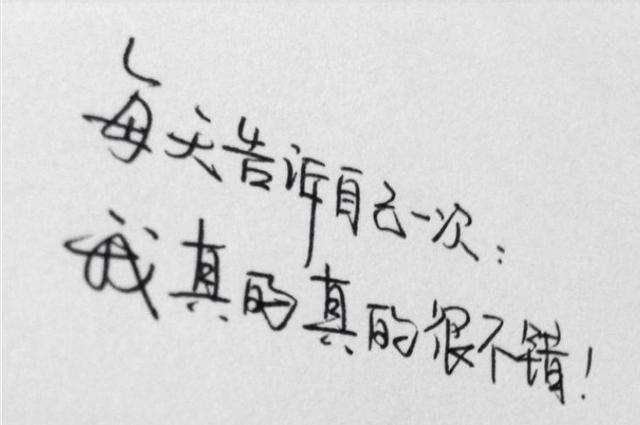 每天告诉自己一次：
我真的真的很不错！